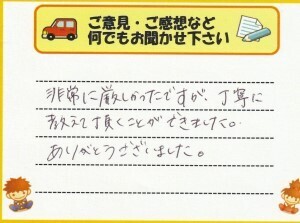 ご意見・ご感想など
何でもお聞かせ下さい
非常に厳しかったですが、丁寧に
教えて頂くことができました。
ありがとうございました。